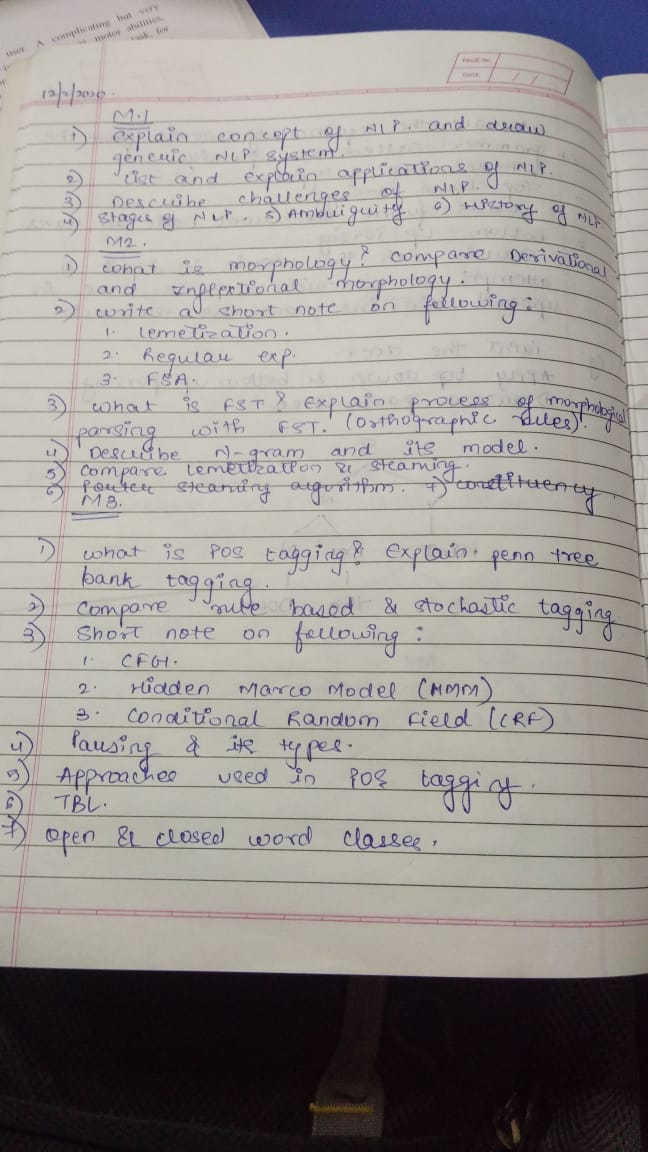 user. A complicating but very
motor abilities,
task, for
PAGE No.
DATE / /
12/2/2020.
M.1
1) explain concept of NLP. and draw
generic NLP system.
2) List and explain applications of NLP.
3) Describe challenges of NLP.
4) Stages of NLP. 5) Ambuiguity 6) History of NLP
M2.
1) What is morphology? compare Derivational
and Inflectional morphology.
2) write a short note on following:
1. lemetization.
2. Regular exp.
3. FSA.
3) what is FST? Explain process of morphological
parsing with FST. (Orthographic rules).
4) Describe N-gram and its model.
5) compare lemetization & steaming.
6) Porter steaming algorithm. 7) constituency
M3.
1) what is POS tagging? Explain. penn tree
bank tagging.
2) Compare rule based & stochastic tagging
3) Short note on following:
1. CFG.
2. Hidden Marco Model (HMM)
3. Conditional Random Field (CRF)
4) Parsing & its types.
5) Approaches used in POS tagging.
6) TBL.
7) open & closed word classes.